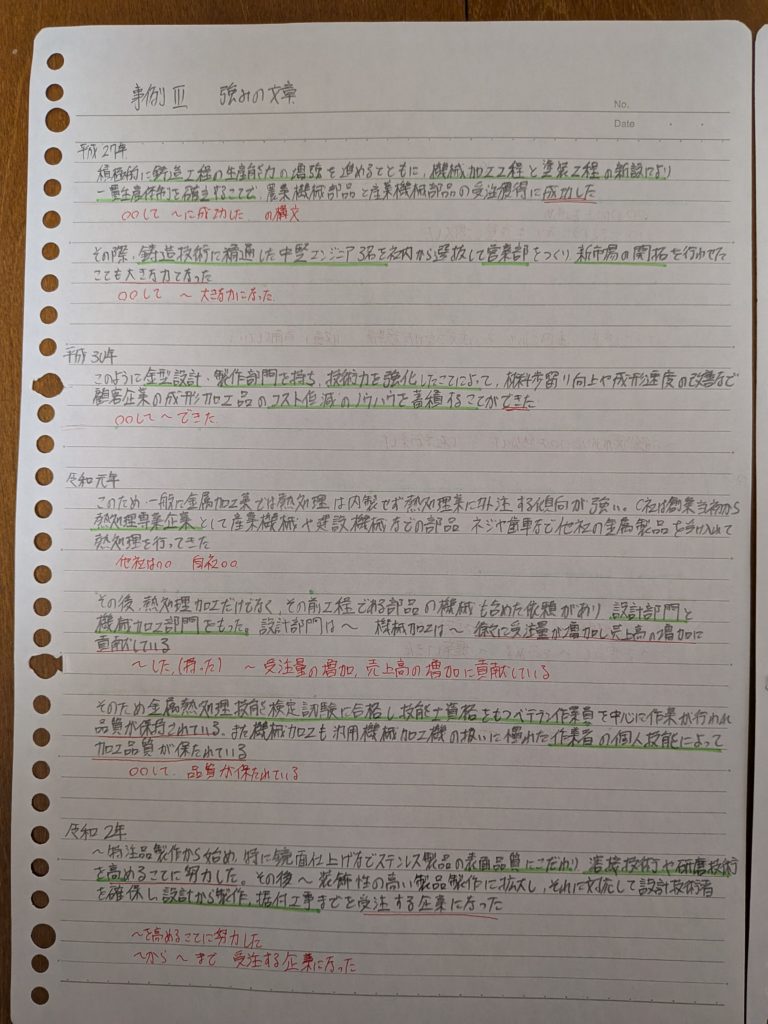 事例Ⅲ 強みの文章
No.
Date
平成27年
積極的に鋳造工程の生産能力の増強を進めるとともに、機械加工工程と塗装工程の新設により
一貫生産体制を確立することで、農業機械部品と産業機械部品の受注獲得に成功した
○○して 〜に成功した の構文
その際、鋳造技術に精通した中堅エンジニア3名を社内から選抜して営業部をつくり 新市場の開拓を行わせた
ことも大きな力となった
○○して 〜 大きな力になった
平成30年
このように金型設計・製作部門を持ち、技術力を強化したことによって、材料歩留り向上や成形速度の改善など
顧客企業の成形加工品のコスト低減のノウハウを蓄積することができた
○○して〜できた
令和元年
このため 一般に金属加工業では熱処理は内製せず熱処理業に外注する傾向が強い。C社は創業当初から
熱処理専業企業として産業機械や建設機械などの部品 ネジや歯車など他社の金属製品を受け入れて
熱処理を行ってきた
他社は○○ 自社○○
その後、熱処理加工だけでなく、その前工程である部品の機械も含めた依頼があり、設計部門と
機械加工部門をもった。設計部門は〜 機械加工は〜 徐々に受注量が増加し売上高の増加に
貢献している
〜した,(持った) 〜受注量の増加, 売上高の増加に貢献している
そのため金属熱処理技能検定試験に合格し技能士資格をもつベテラン作業員を中心に作業が行われ
品質が保持されている。また機械加工も汎用機械加工機の扱いに慣れた作業者の個人技能によって
加工品質が保たれている
○○して 品質が保たれている
令和2年
〜特注品製作から始め、特に鏡面仕上げなどステンレス製品の表面品質にこだわり 溶接技術や研磨技術
を高めることに努力した。その後〜装飾性の高い製品製作に拡大し、それに対応して設計技術者
を確保し、設計から製作、据付工事までを受注する企業になった
〜を高めることに努力した
〜から〜まで 受注する企業になった